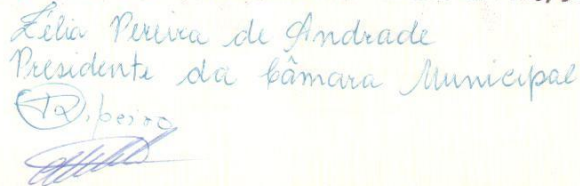 Zélia Pereira de Andrade
Presidente da Câmara Municipal
Ribeiro